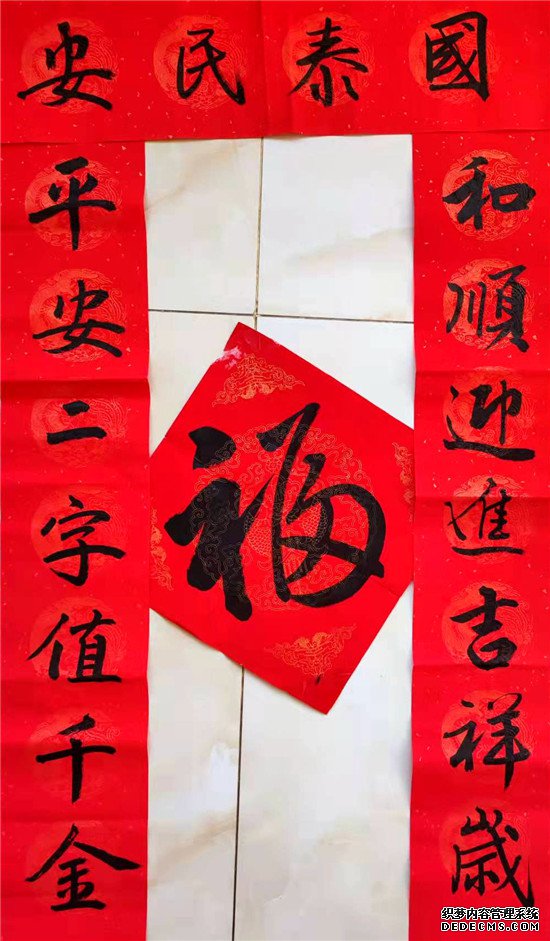 國泰民安
和順迎進吉祥歲
平安二字值千金
福
织梦内容管理系统
DEDECMS.COM